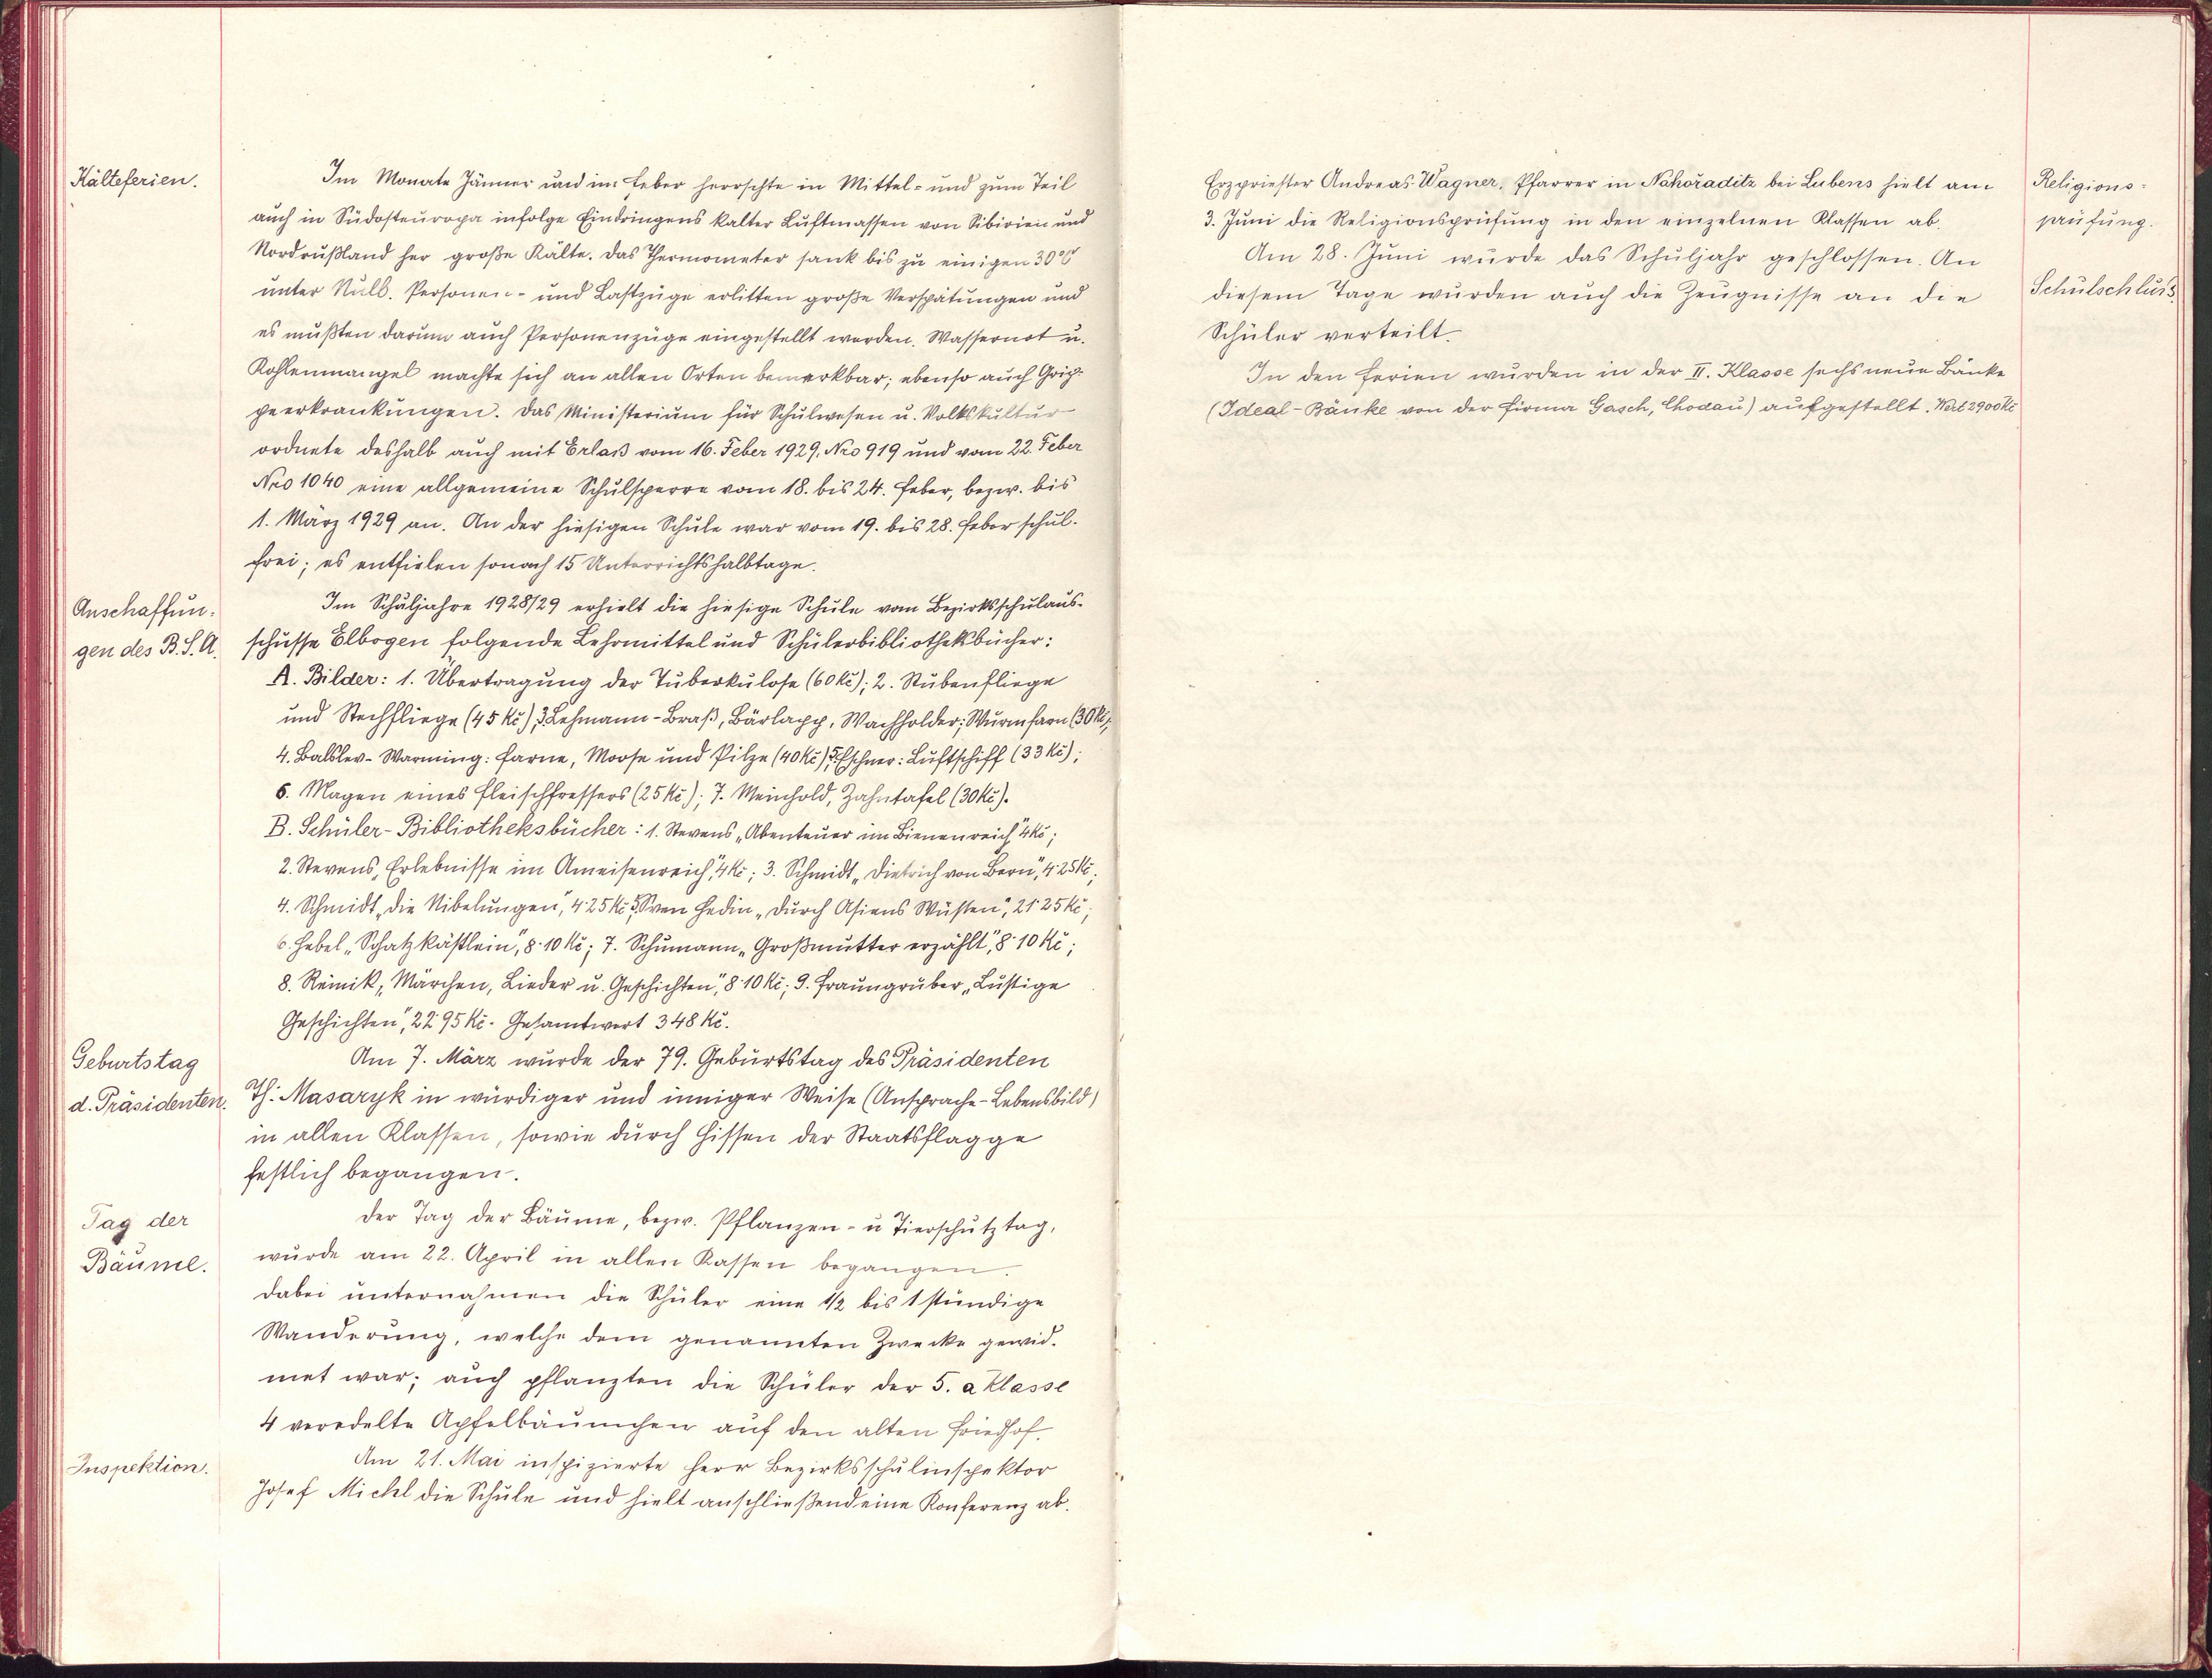 Kälteferien.
Im Monate Jänner und im Feber herrschte in Mittel- und zum Teil
auch in Südosteuropa infolge Eindringens kalter Luftmassen von Sibirien und
Nordrußland her große Kälte. Das Thermometer sank bis zu einigen 30°C
unter Null. Personen- und Lastzüge erlitten große Verspätungen und
es mußten darum auch Personenzüge eingestellt werden. Wassernot u.
Kohlenmangel machte sich an allen Orten bemerkbar; ebenso auch Grip-
peerkrankungen. Das Ministerium für Schulwesen u. Volkskultur
ordnete deshalb auch mit Erlaß vom 16. Feber 1929, Nro 919 und vom 22. Feber
Nro 1040 eine allgemeine Schulsperre vom 18. bis 24. Feber, bezw. bis
1. März 1929 an. An der hiesigen Schule war vom 19. bis 28. Feber schul-
frei; es entfielen sonach 15 Unterrichtshalbtage.
Anschaffun-
gen des B.S.A.
Im Schuljahre 1928/29 erhielt die hiesige Schule vom Bezirksschulaus-
schusse Elbogen folgende Lehrmittel und Schülerbibliotheksbücher:
A. Bilder: 1. Übertragung der Tuberkulose (60 Kč); 2. Stubenfliege
und Stechfliege (45 Kč); 3. Lehmann-Braß, Bärlapp, Wachholder; Wurmfarn (30 Kč);
4. Balslev-Warming: Farne, Moose und Pilze (40 Kč); 5. Eschner: Luftschiff (33 Kč);
6. Magen eines Fleischfressers (25 Kč); 7. Meinhold, Zahntafel (30 Kč).
B. Schüler-Bibliotheksbücher: 1. Stevens „Abenteuer im Bienenreich", 4 Kč;
2. Stevens „Erlebnisse im Ameisenreich", 4 Kč; 3. Schmidt „Dietrich von Bern", 4·25 Kč;
4. Schmidt „Die Nibelungen", 4·25 Kč; 5. Sven Hedin „Durch Asiens Wüsten", 21·25 Kč;
6. Hebel „Schatzkästlein", 8·10 Kč; 7. Schumann „Großmutter erzählt", 8·10 Kč;
8. Reinik „Märchen, Lieder u. Geschichten", 8·10 Kč; 9. Fraungruber „Lustige
Geschichten", 22·95 Kč. Gesamtwert 348 Kč.
Geburtstag
d. Präsidenten.
Am 7. März wurde der 79. Geburtstag des Präsidenten
Th. Masaryk in würdiger und inniger Weise (Ansprache-Lebensbild)
in allen Klassen, sowie durch Hissen der Staatsflagge
festlich begangen.
Tag der
Bäume.
Der Tag der Bäume, bezw. Pflanzen- u Tierschutztag,
wurde am 22. April in allen Kassen begangen.
Dabei unternahmen die Schüler eine 1/2 bis 1 stündige
Wanderung, welche dem genannten Zwecke gewid-
met war; auch pflanzten die Schüler der 5. a Klasse
4 veredelte Apfelbäumchen auf den alten Friedhof.
Inspektion.
Am 21. Mai inspizierte Herr Bezirksschulinspektor
Josef Michl die Schule und hielt anschließend eine Konferenz ab.
Erzpriester Andreas Wagner, Pfarrer in Nahořaditz bei Lubens hielt am
3. Juni die Religionsprüfung in den einzelnen Klassen ab.
Religions-
prüfung.
Am 28. Juni wurde das Schuljahr geschlossen. An
diesem Tage wurden auch die Zeugnisse an die
Schüler verteilt.
Schulschluß.
In den Ferien wurden in der II. Klasse sechs neue Bänke
(Ideal-Bänke von der Firma Gasch, Chodau) aufgestellt. Wert 2900 Kč